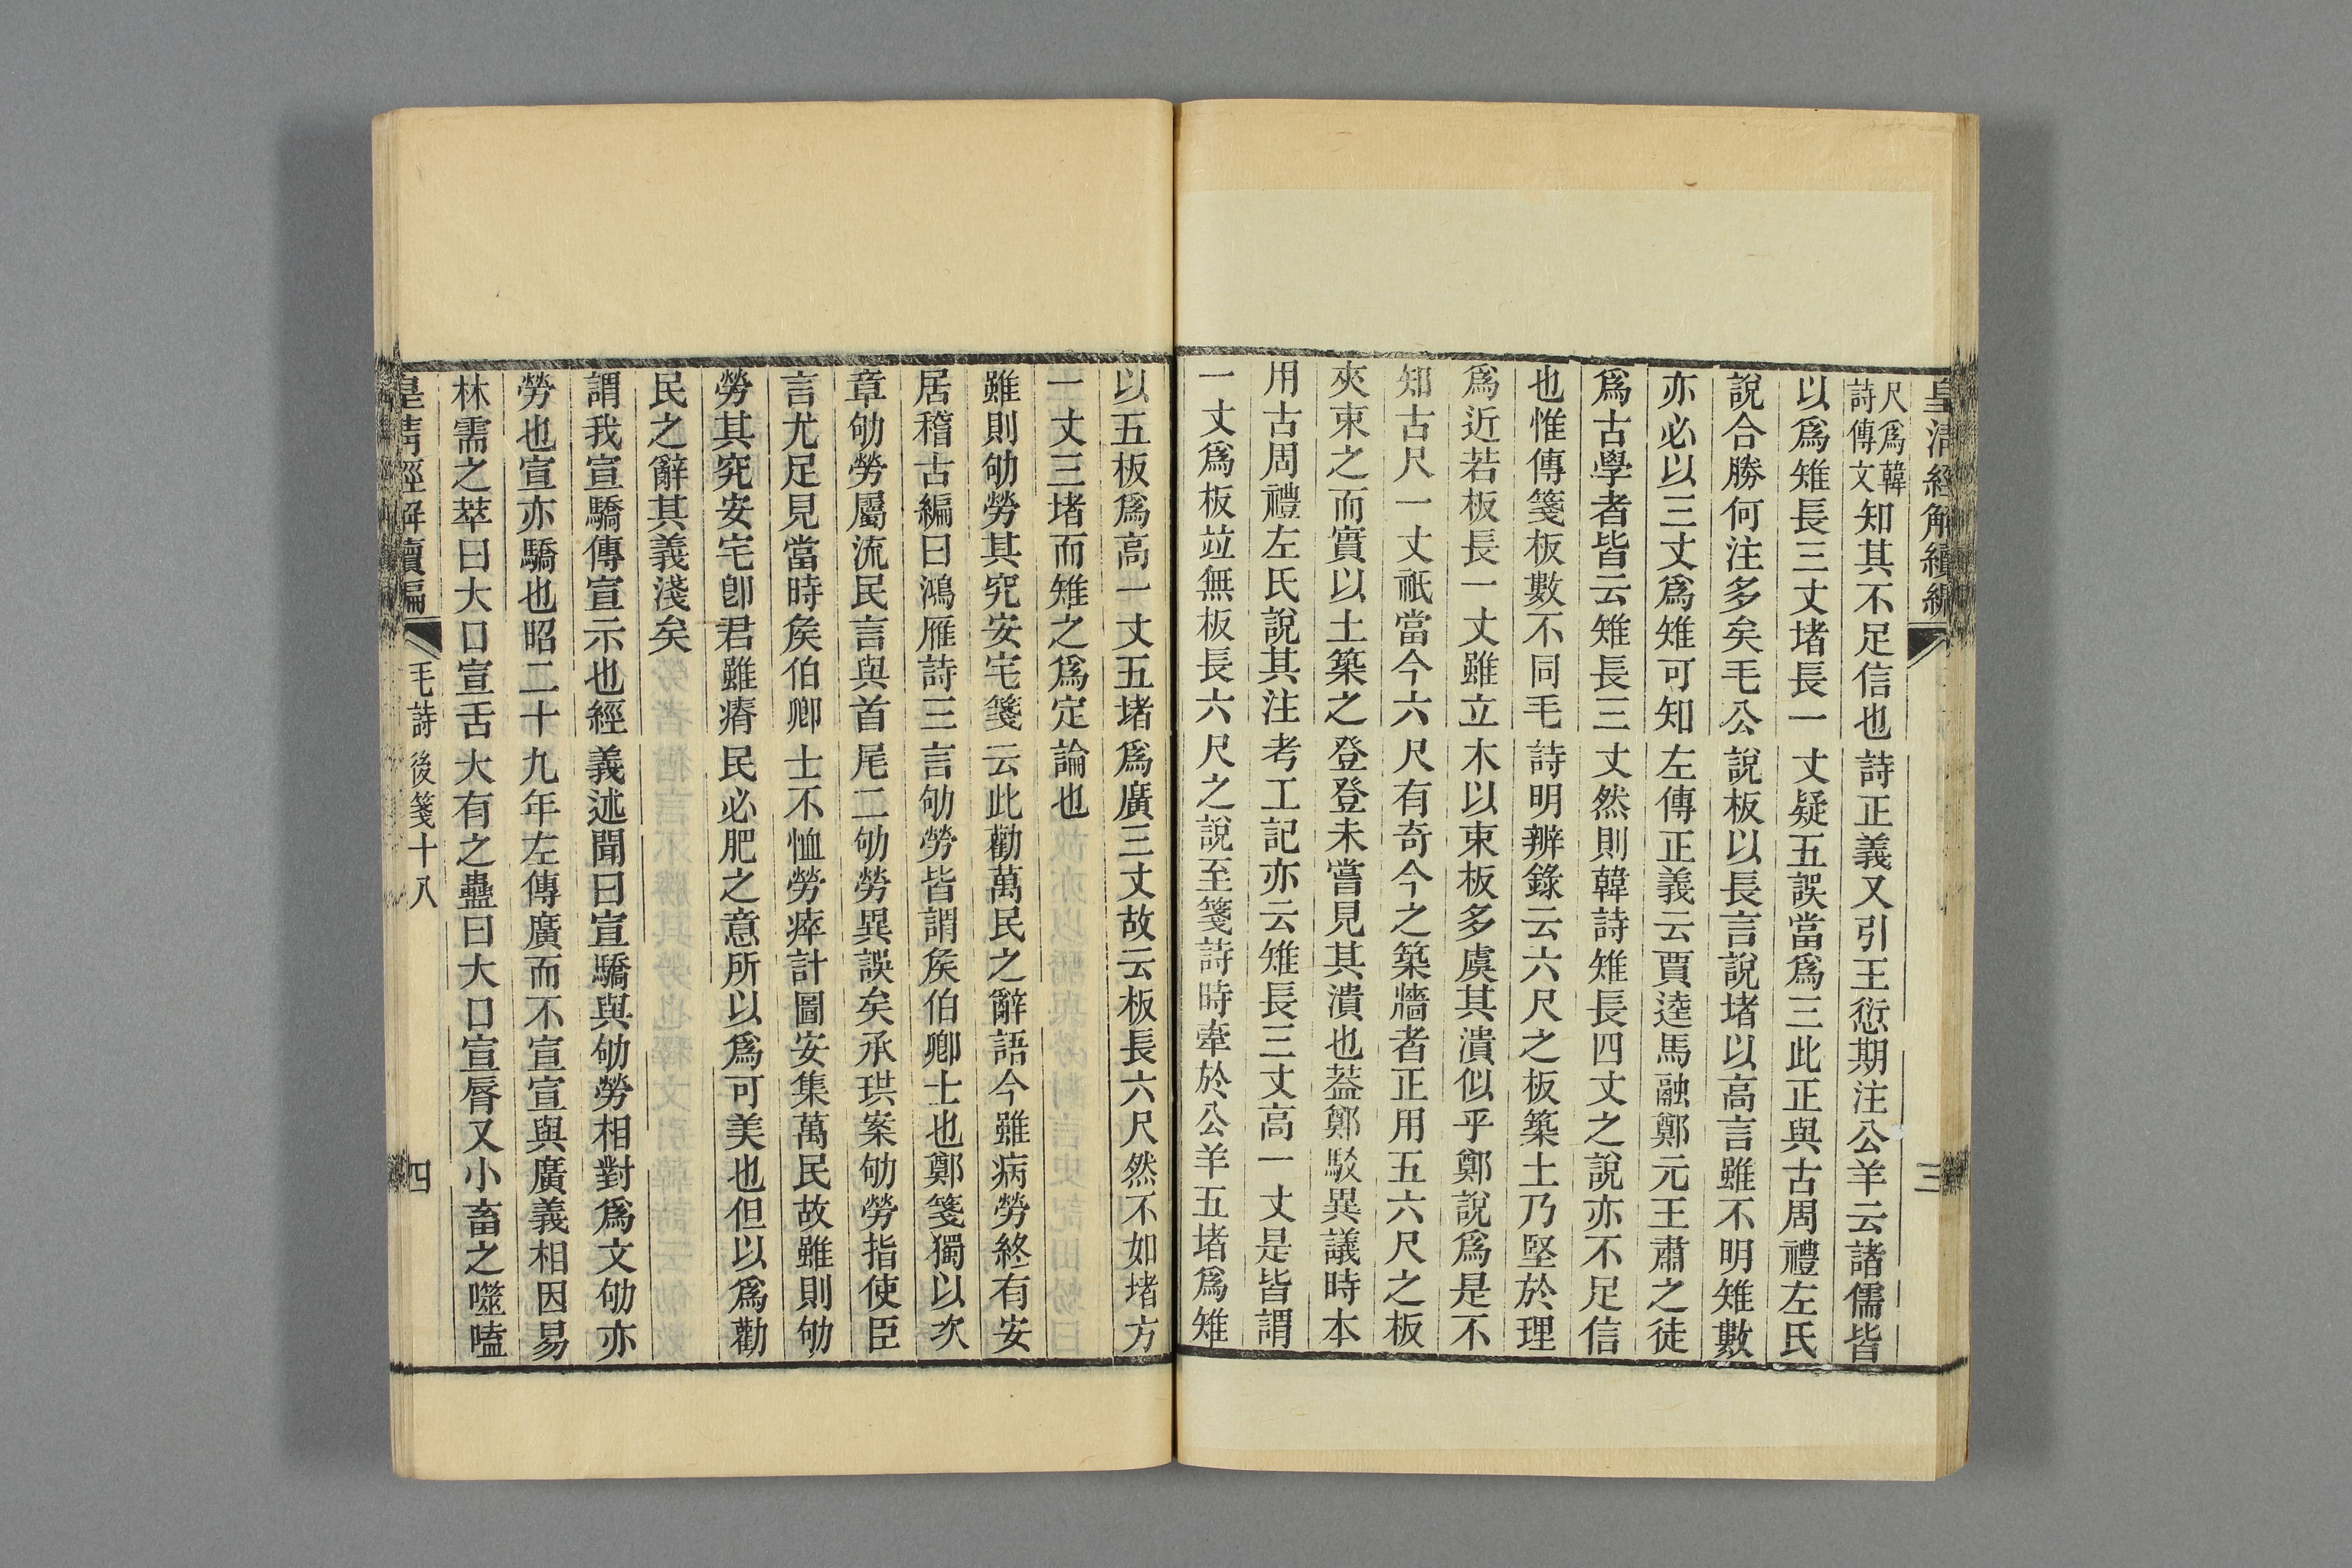 皇清經解續編
三
尺爲韓
詩傳文
知其不足信也詩正義又引王愆期注公羊云諸儒皆
以爲雉長三丈堵長一丈疑五誤當爲三此正與古周禮左氏
說合勝何注多矣毛公說板以長言說堵以高言雖不明雉數
亦必以三丈爲雉可知左傳正義云賈逵馬融鄭元王肅之徒
爲古學者皆云雉長三丈然則韓詩雉長四丈之說亦不足信
也惟傳箋板數不同毛詩明辨錄云六尺之板築土乃堅於理
爲近若板長一丈雖立木以束板多虞其潰似乎鄭說爲是不
知古尺一丈祇當今六尺有奇今之築牆者正用五六尺之板
夾束之而實以土築之登登未嘗見其潰也蓋鄭駁異議時本
用古周禮左氏說其注考工記亦云雉長三丈高一丈是皆謂
一丈爲板竝無板長六尺之說至箋詩時牽於公羊五堵爲雉
以五板爲高一丈五堵爲廣三丈故云板長六尺然不如堵方
一丈三堵而雉之爲定論也
雖則劬勞其究安宅箋云此勸萬民之辭語今雖病勞終有安
居稽古編曰鴻雁詩三言劬勞皆謂矦伯卿士也鄭箋獨以次
章劬勞屬流民言與首尾二劬勞異誤矣承珙案劬勞指使臣
言尤足見當時矦伯卿士不恤勞瘁計圖安集萬民故雖則劬
勞其究安宅卽君雖瘠民必肥之意所以爲可美也但以爲勸
民之辭其義淺矣
謂我宣驕傳宣示也經義述聞曰宣驕與劬勞相對爲文劬亦
勞也宣亦驕也昭二十九年左傳廣而不宣宣與廣義相因易
林需之萃曰大口宣舌大有之蠱曰大口宣脣又小畜之噬嗑
皇淸經解續編
毛詩後箋十八
四